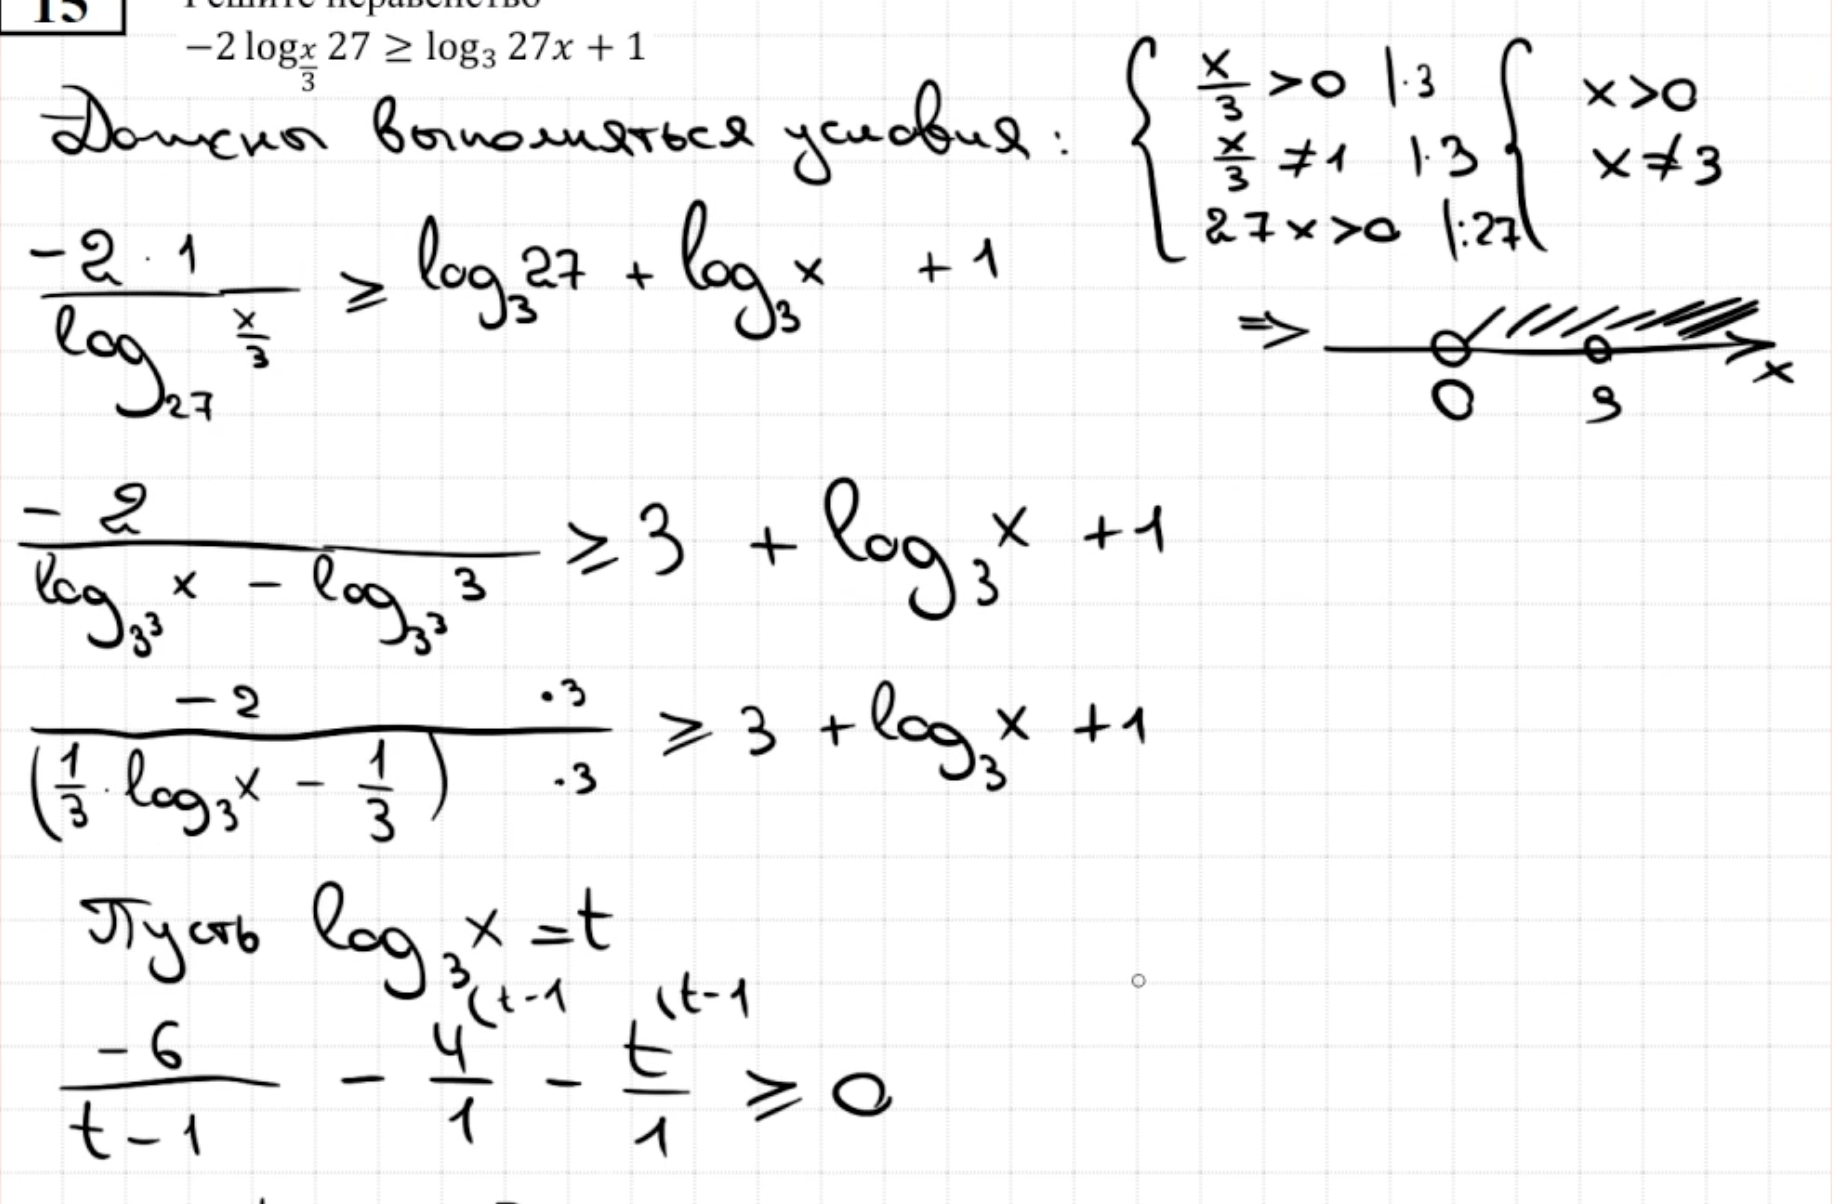 15
Решите неравенство
−2 log_{x/3} 27 ≥ log₃ 27x + 1
Должны выполняться условия:
x/3 > 0 |·3
x/3 ≠ 1 |·3
27x > 0 |:27
x > 0
x ≠ 3
(−2·1)/(log₂₇ x/3) ≥ log₃ 27 + log₃ x + 1
⇒ 0 3 x
−2/(log_{3³} x − log_{3³} 3) ≥ 3 + log₃ x + 1
(−2 ·3)/((1/3 · log₃ x − 1/3) ·3) ≥ 3 + log₃ x + 1
Пусть log₃ x = t
(t−1 (t−1
−6/(t−1) − 4/1 − t/1 ≥ 0